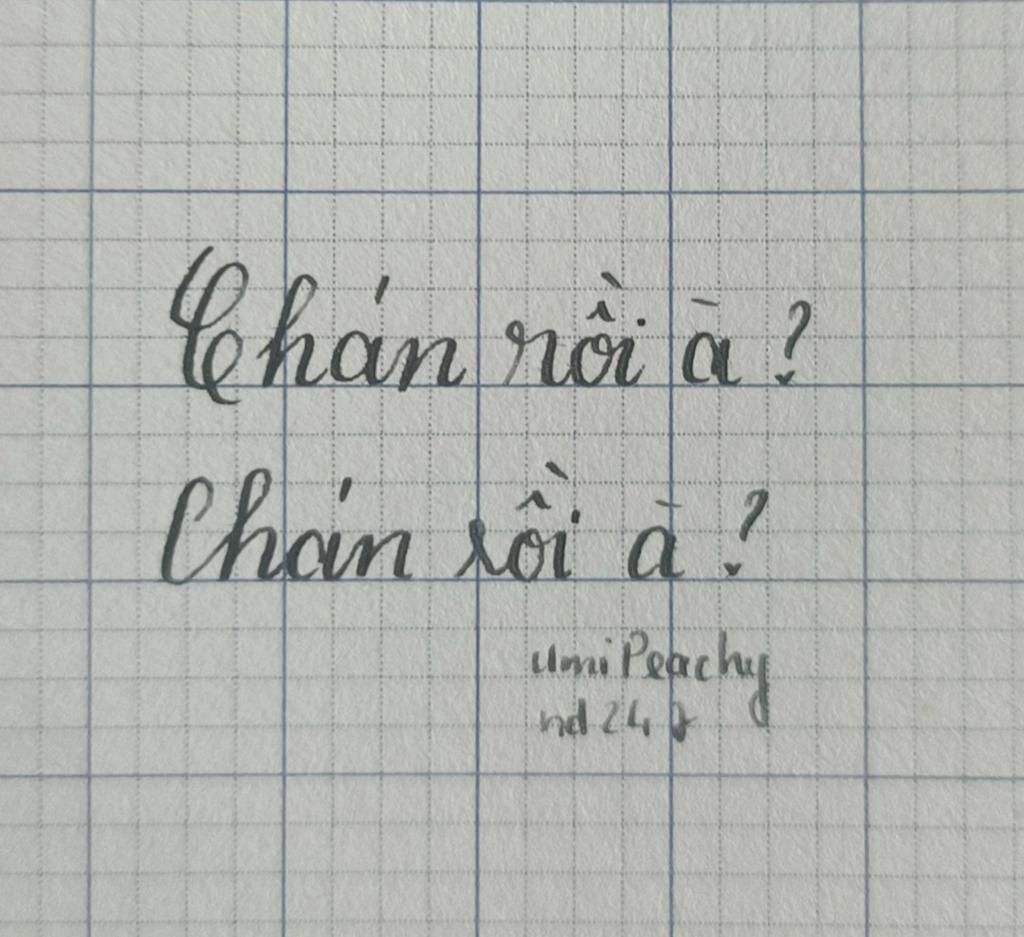 Chán rồi à?
Chán rồi à?
umiPeachy
nd247